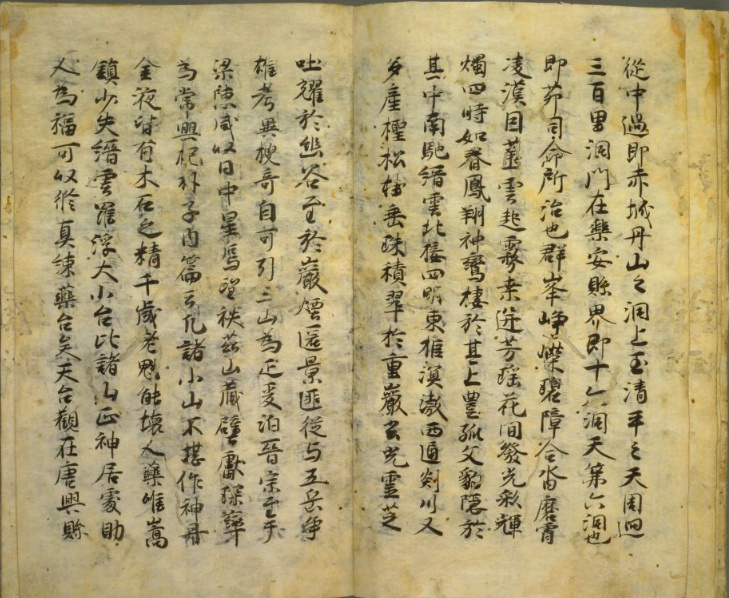 從中過即赤城丹山之洞上玉清平之天周迴
三百里洞門在樂安縣界即十大洞天第六洞也
即茆司命所治也群峯崢嶸碧障合沓磨霄
凌漢雲起霧芳瑤花間發光彩輝
燭四時如春鳳翔神鸞棲於其上豐狐父豹隱於
其中南馳縉雲北接四明東溟渤西通剡川又
多產檉松桂垂珠積翠於重巖玄光靈芝
吐耀於幽谷至於巖煙匿景匪從与五岳爭
雄考異挍奇自可引三山為疋爰泊晉宗至于
梁陳咸以日中星鳥望秩茲山藏璧獻琛率
為常興杞朴子內篇云凡諸小山不堪作神丹
金液皆有木石之精千歲老魅能壞人藥唯嵩
鎮少失縉雲羅浮大小台比諸山正神居處助
人為福可以修真練藥台矣天台觀在唐興縣